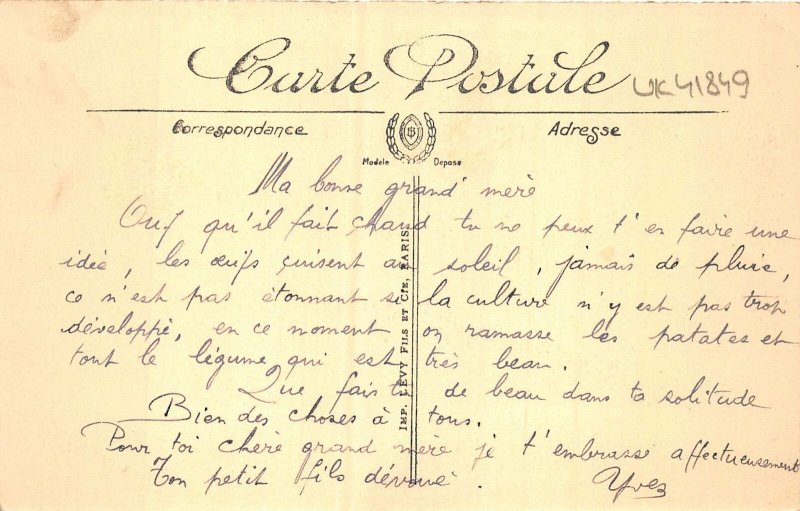 Carte Postale
UK41849
Correspondance
Adresse
Modèle Déposé
IMP. LEVY FILS ET CIE, PARIS
Ma bonne grand' mère
Ouf qu'il fait chaud tu ne peux t'en faire une
idée, les œufs cuisent au soleil, jamais de pluie,
ce n'est pas étonnant si la culture n'y est pas trop
développé, en ce moment on ramasse les patates et
tout le légume qui est très beau.
Que fais tu de beau dans ta solitude
Bien des choses à tous.
Pour toi chère grand mère je t'embrasse affectueusement
Ton petit fils dévoué.
Yves